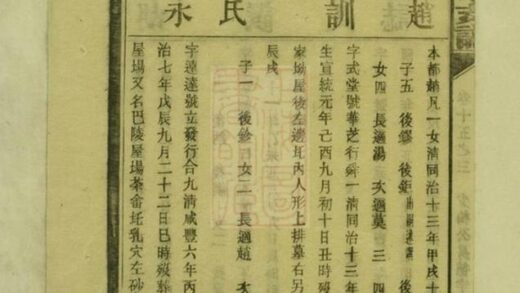 趙訓氏永
本都趙凡一女清同治十三年甲戌十
子五 後鏐 後鉅 後
女四 長適湯 次適莫 三 四
字式堂號華芝行舜一清同治十三年
生宣統元年己酉九月初十日丑時歿
家坳屋後左邊坵內人形上排墓右另
辰戌
子一 後鈴 女二 長適趙 次
字達達號立發行合九清咸豐六年丙
治七年戊辰九月二十二日巳時歿葬
屋場又名巴陵屋場茶畬坵乳穴左砂
卷十五之三